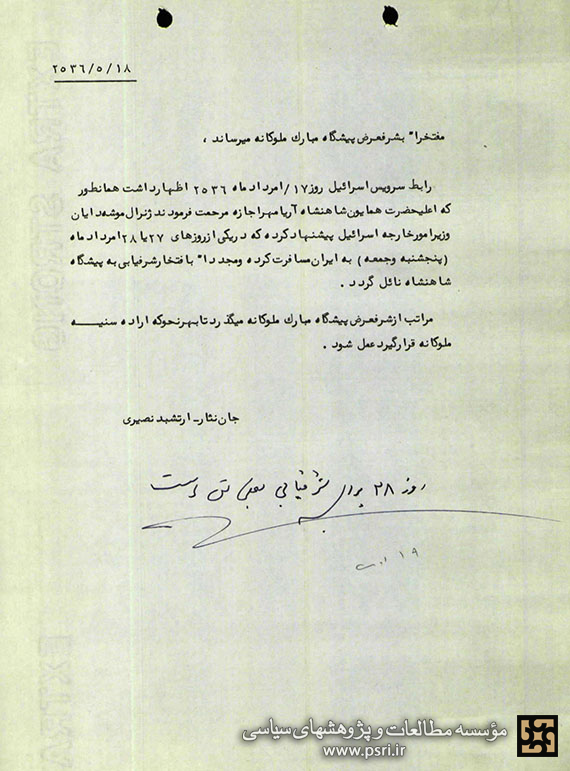 ۲۵۳۶/۵/۱۸
مفتخرا" بشرفعرض پیشگاه مبارك ملوکانه میرساند ،
رابط سرویس اسرائیل روز ۱۷/امرداد ماه ۲۵۳۶ اظهارداشت همانطور
که اعلیحضرت همایون شاهنشاه آریامهر اجازه مرحمت فرمودند ژنرال موشه دایان
وزیر امور خارجه اسرائیل پیشنهاد کرده که در یکی از روزهای ۲۷ یا ۲۸ امرداد ماه
(پنجشنبه وجمعه) به ایران مسافرت کرده ومجددا" با فتخار شرفیابی به پیشگاه
شاهنشاه نائل گردد .
مراتب از شرفعرض پیشگاه مبارك ملوکانه میگذرد تا بهر نحوکه اراده سنیه
ملوکانه قرارگیرد عمل شود .
جان نثار ـ ارتشبد نصیری
روز ۲۸ برای شرفیابی معین شده است
۱۹
مؤسسه مطالعات و پژوهشهای سیاسی
www.psri.ir